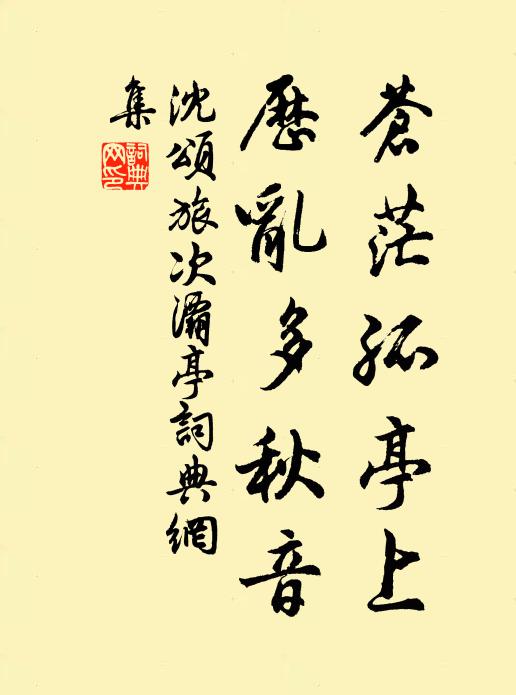 蒼茫孤亭上
歷亂多秋音
沈頌旅次灞亭詞典網
集
詞典
网印